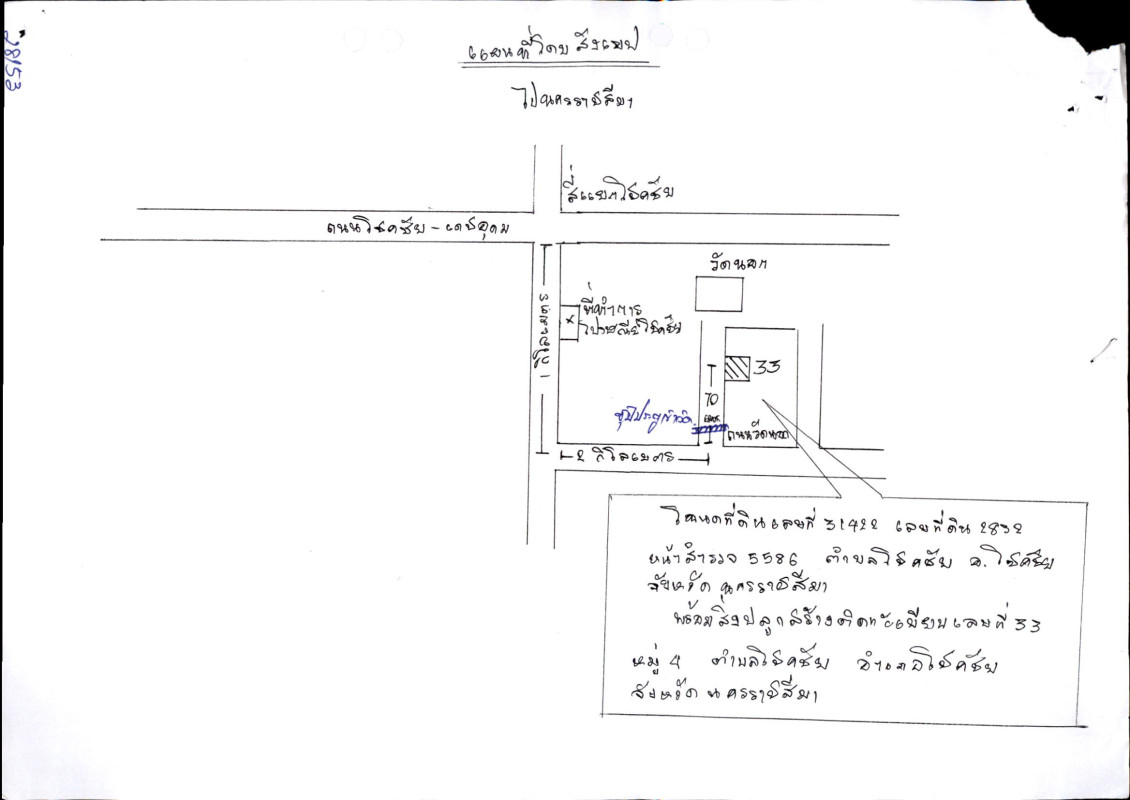 28/53
แผนที่โดยสังเขป
ไปนครราชสีมา
สี่แยกโชคชัย
ถนนโชคชัย - เดชอุดม
วัดนอก
ที่ทำการ
ไปรษณีย์โชคชัย
x
33
70
เมตร
ซุ้มประตูวัด
ถนนวัดนอก
2 กิโลเมตร
โฉนดที่ดินเลขที่ 31422 เลขที่ดิน 2832
หน้าสำรวจ 5586 ตำบลโชคชัย อ.โชคชัย
จังหวัด นครราชสีมา
พร้อมสิ่งปลูกสร้างติดทะเบียนเลขที่ 33
หมู่ 4 ตำบลโชคชัย อำเภอโชคชัย
จังหวัด นครราชสีมา